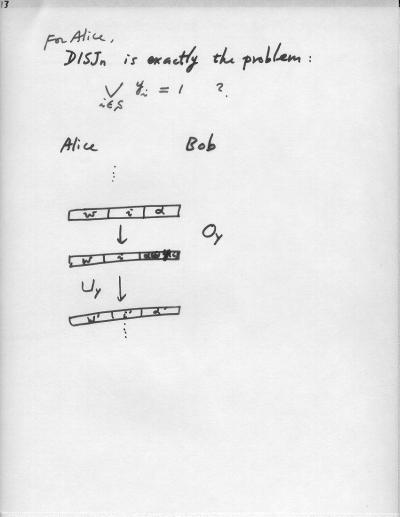 13
For Alice,
DISJn is exactly the problem:
⋁ yi = 1 ?
i∈S
Alice Bob
⋮
w i α
↓ Oy
w i
Uy ↓
w' i' α'
⋮